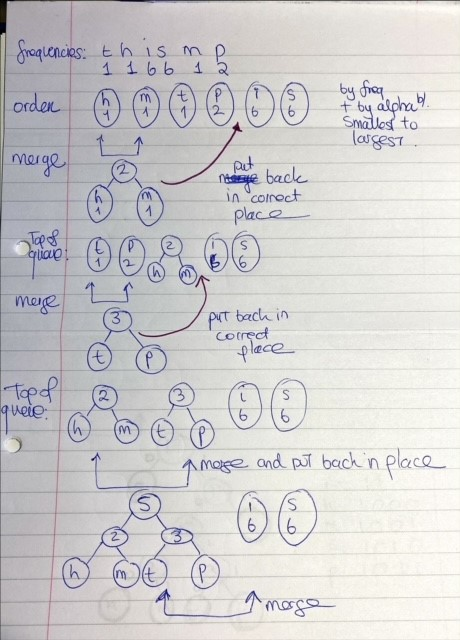 frequencies: t h i s m p
1 1 6 6 1 2
order h m t p i s
1 1 1 2 6 6
by freq
+ by alphab/.
smallest to
largest.
merge
2
h m
1 1
put
back
in correct
place
Top of
queue: t p 2 i s
1 2 h m 6 6
merge
3
t p
put back in
correct
place
Top of
queue: 2 3 i s
h m t p 6 6
merge and put back in place
5 i s
6 6
2 3
h m t p
merge